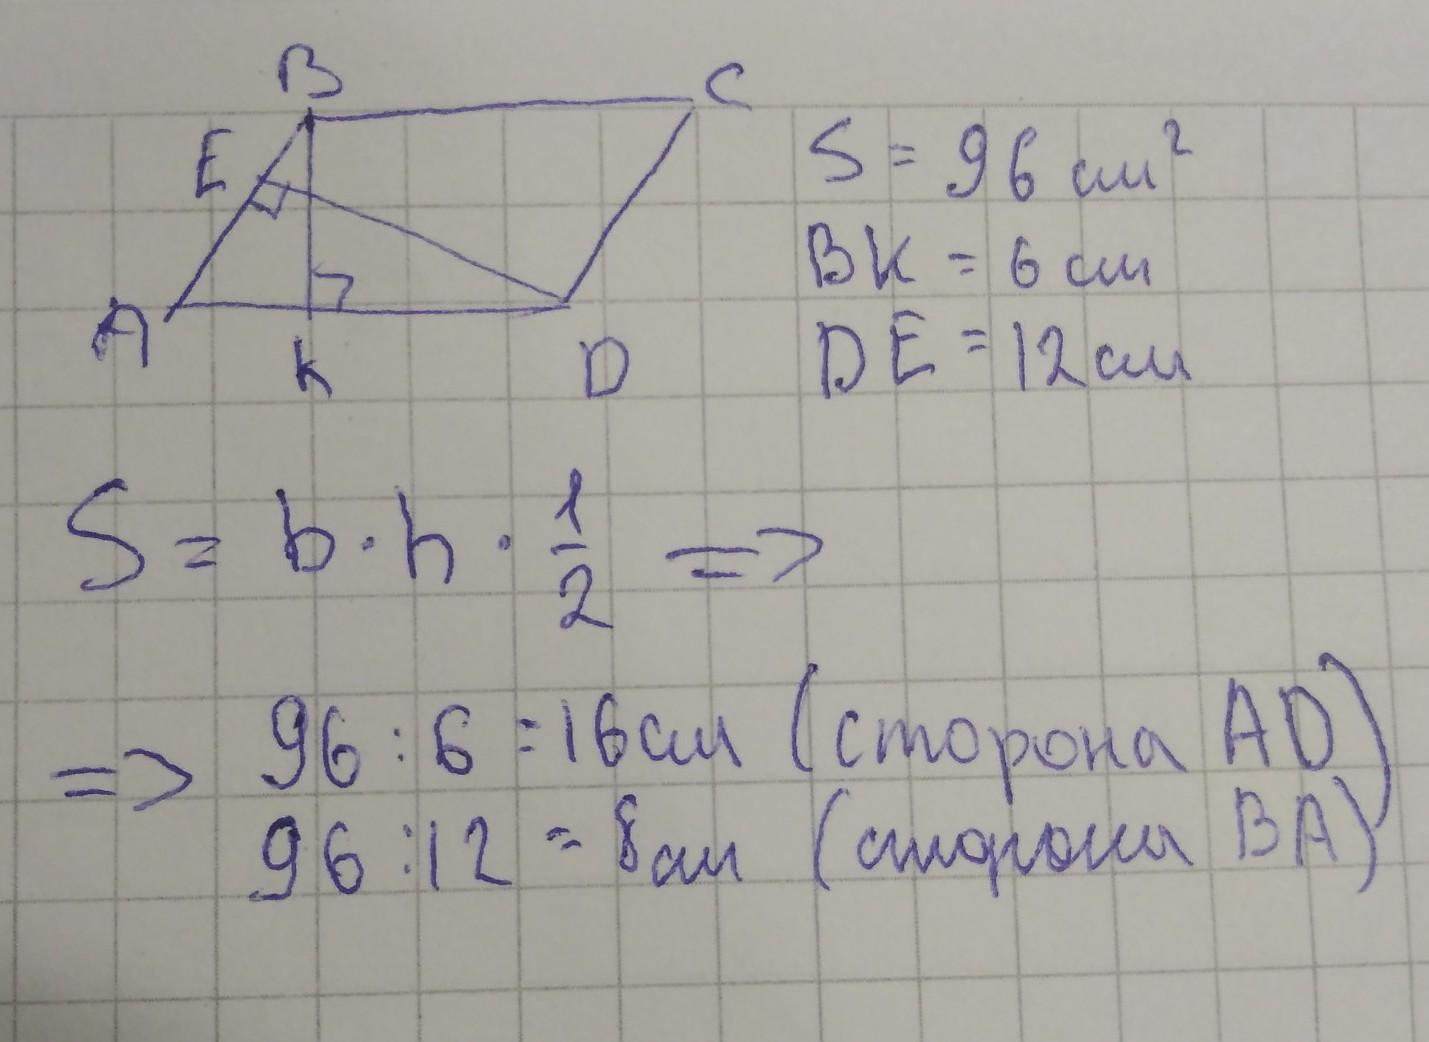 B
C
E
A
K
D
S = 96 см²
BK = 6 см
DE = 12 см
S = b · h · 1/2 =>
=> 96 : 6 = 16 см (сторона AD)
96 : 12 = 8 см (сторона BA)